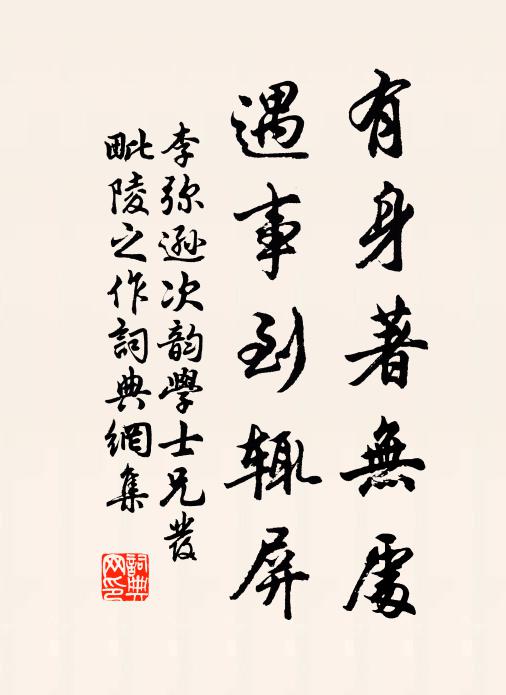 有身著無處
遇事到輒屏
李弥遜次韵學士兄發
毗陵之作詞典網集
詞典
网印